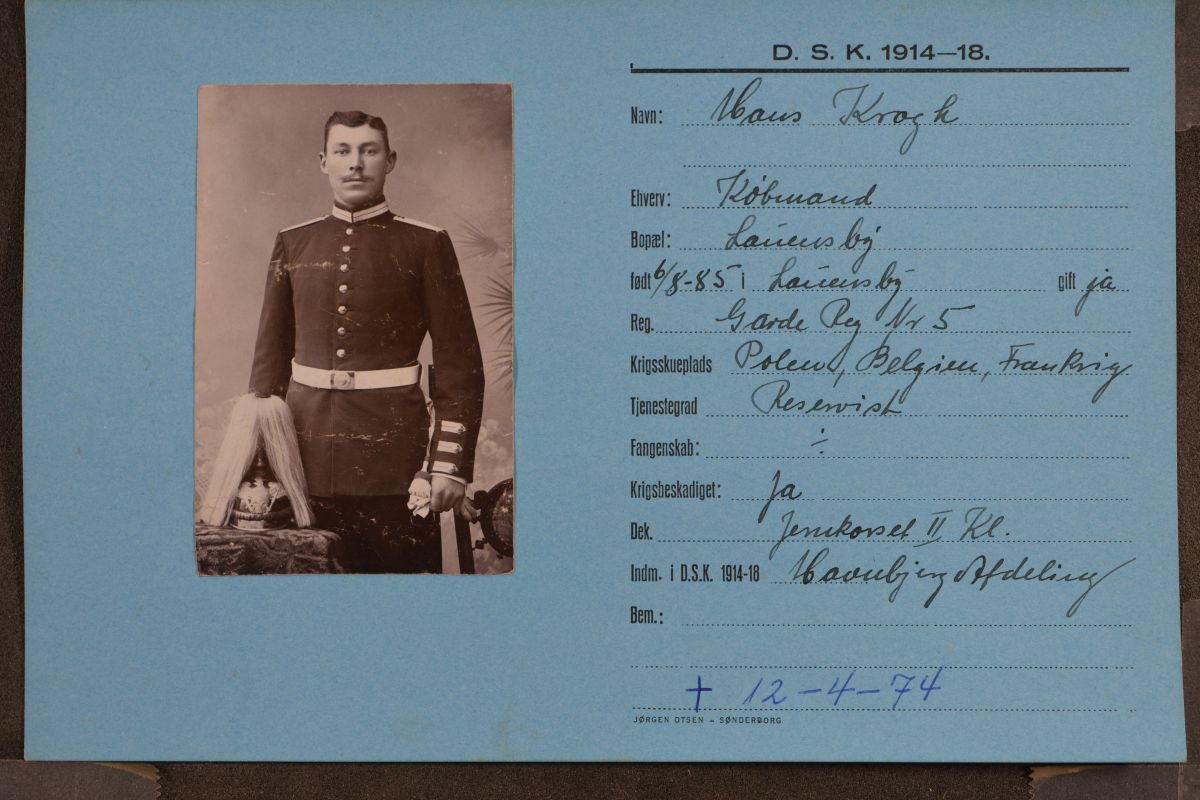 D. S. K. 1914—18.
Navn: Hans Krogh
Ehverv: Købmand
Bopæl: Lauensby
født 6/8-85 i Lauensby gift ja
Reg. Garde Reg Nr 5
Krigsskueplads Polen, Belgien, Frankrig
Tjenestegrad Reservist
Fangenskab: ÷
Krigsbeskadiget: Ja
Dek. Jernkorset II Kl.
Indm. i D.S.K. 1914-18 Havnbjerg Afdeling
Bem.:
† 12-4-74
JØRGEN OTSEN – SØNDERBORG